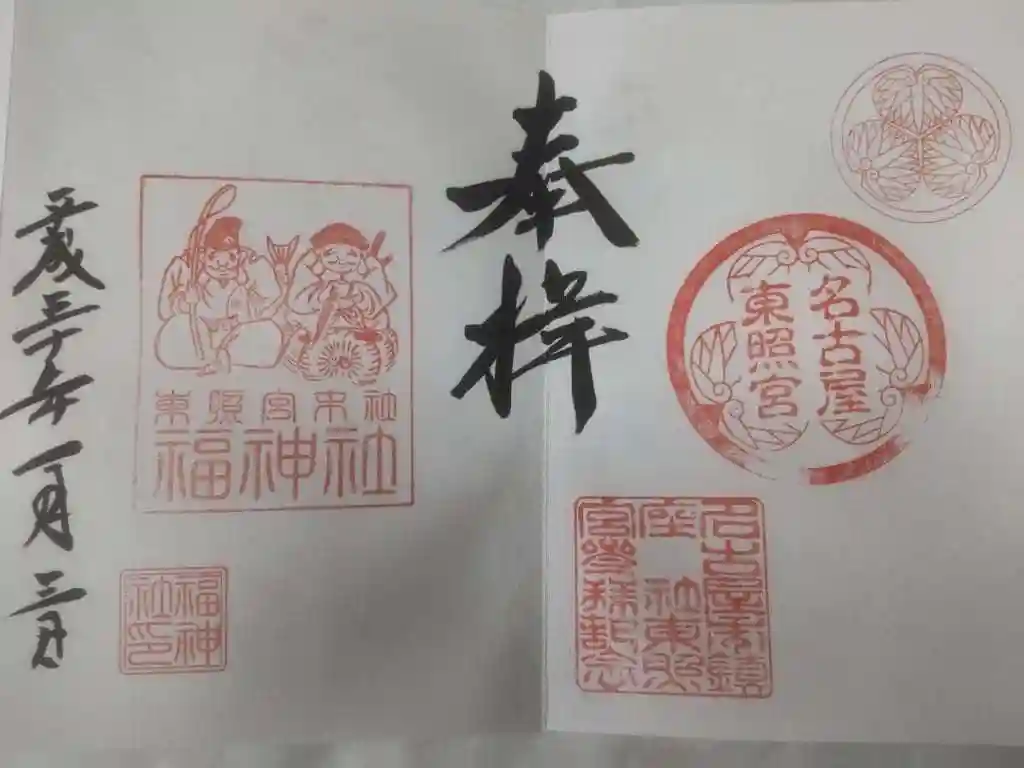 名古屋
東照宮
奉拝
名古屋市鎮
座 社東照
宮参拝記念
東照宮末社
福神社
福神
社印
平成三十年一月三日